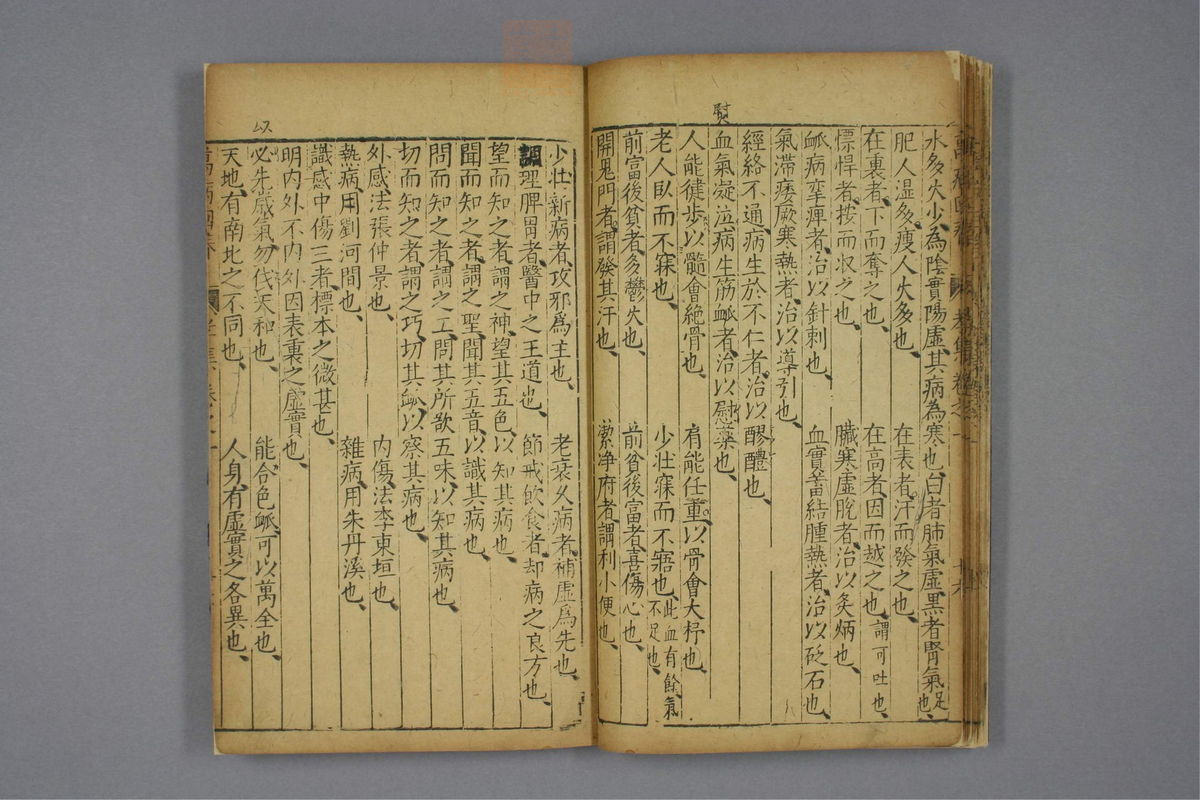 熨
水多火少為陰實陽虛其病為寒也、白者肺氣虛黑者腎氣足也、
肥人湿多瘦人火多也、 在表者汗而發之也、
在裏者下而奪之也、 在高者因而越之也、謂可吐也、
慓悍者按而收之也、 臟寒虛脫者治以灸焫也、
䘑病攣痺者治以針刺也、 血實蓄結腫熱者治以砭石也、
氣滯痿厥寒熱者治以導引也、
經絡不通病生於不仁者治以醪醴也、
血氣凝泣病生筋䘑者治以慰藥也、
人能健步以髓會絶骨也、 肩能任重以骨會大杼也、
老人臥而不寐也、 少壯寐而不寤也、此血有餘氣不足也、
前富後貧者多鬱火也、 前貧後富者喜傷心也、
開鬼門者謂發其汗也、 潔淨府者謂利小便也、
以
少壯新病者攻邪爲主也、 老衰久病者補虛爲先也、
調理脾胃者醫中之王道也、 節戒飲食者却病之良方也、
望而知之者謂之神望其五色以知其病也、
聞而知之者謂之聖聞其五音以識其病也、
問而知之者謂之工問其所欲五味以知其病也、
切而知之者謂之巧切其䘑以察其病也、
外感法張仲景也、 内傷法李東垣也、
熱病用劉河間也、 雜病用朱丹溪也、
識感中傷三者標本之微甚也、
明内外不内外因表裏之虛實也、
必先歲氣勿伐天和也、 能合色䘑可以萬全也、
天地有南北之不同也、 人身有虛實之各異也、